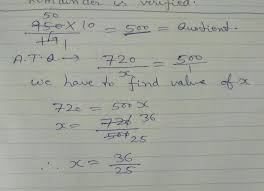 Remainder is verified.
50
950 × 10 / 19 1 = 500 = Quotient.
A.T.Q → 720 / x = 500 / 1
we have to find value of x
720 = 500 x
x = 720 36 / 500 25
∴ x = 36 / 25